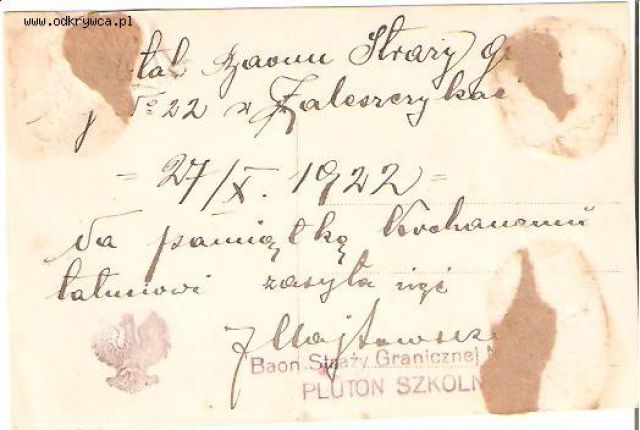 www.odkrywca.pl
baonu Straży
№ 22 w Zaleszczykac
= 27/X. 1922 =
Na pamiątkę Kochanemu
tatusiowi zasyła
Baon Straży Granicznej N
PLUTON SZKOLN